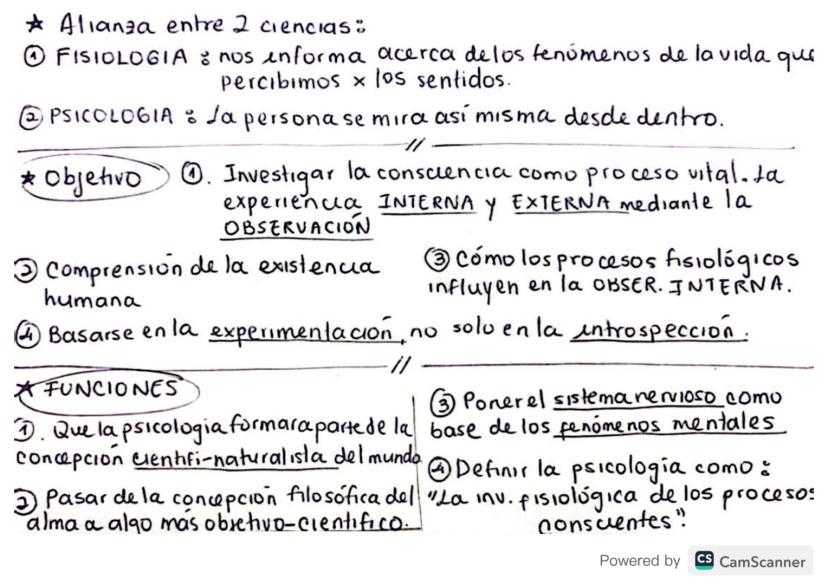 ★ Alianza entre 2 ciencias:
① FISIOLOGIA : nos informa acerca de los fenómenos de la vida que
percibimos x los sentidos.
② PSICOLOGIA : La persona se mira así misma desde dentro.
★ Objetivo ①. Investigar la consciencia como proceso vital. La
experiencia INTERNA y EXTERNA mediante la
OBSERVACIÓN
② Comprensión de la existencia
humana
③ Cómo los procesos fisiológicos
influyen en la OBSER. INTERNA.
④ Basarse en la experimentación, no solo en la introspección.
★ FUNCIONES
①. Que la psicologia formara parte de la
concepción cientifi-naturalista del mundo
② Pasar de la concepción filosófica del
alma a algo más objetivo-científico.
③ Poner el sistema nervioso como
base de los fenómenos mentales
④ Definir la psicología como :
"La inv. fisiológica de los procesos
conscientes".
Powered by CS CamScanner